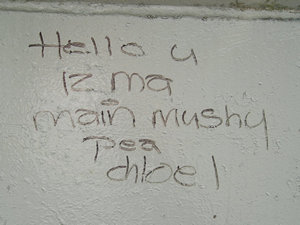 Hello u
iz ma
main mushy
pea
chloe!